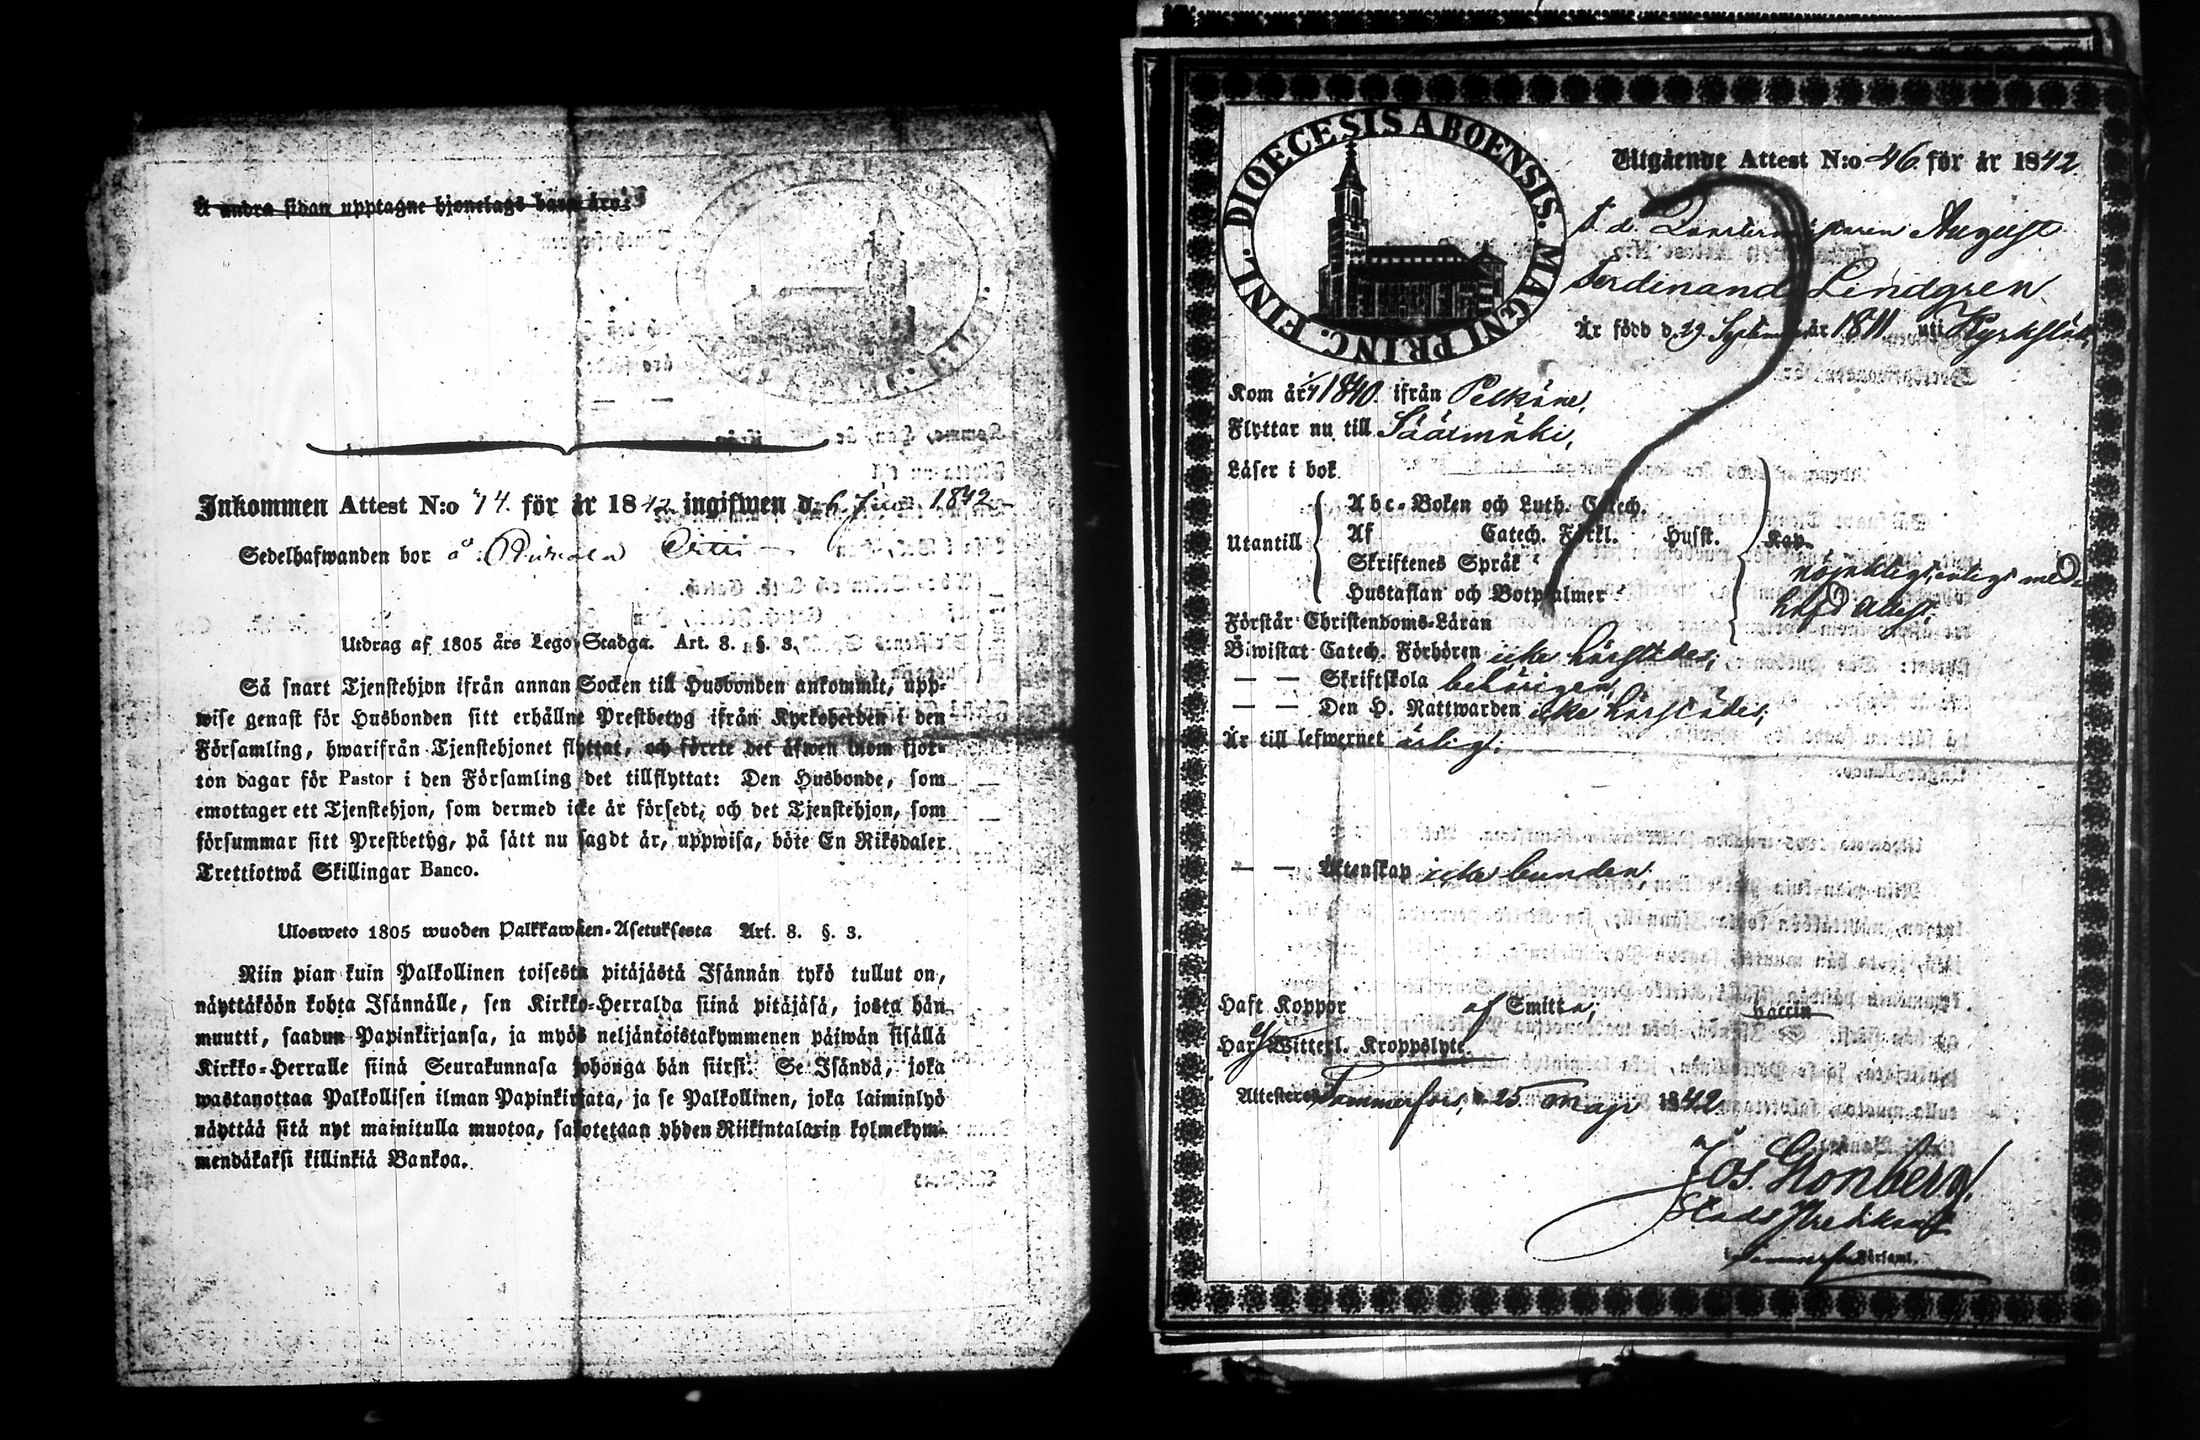 Å andra sidan upptagne hjonelags barn äro:
Inkommen Attest N:o 74. för år 1842 ingifwen d. 6. Juni 1842
Sedelhafwanden bor å
Utdrag af 1805 års Lego-Stadga. Art. 8. §. 3.
Så snart Tjenstehjon ifrån annan Socken till Husbonden ankommit, upp-
wise genast för Husbonden sitt erhållne Prestbetyg ifrån Kyrkoherden i den
Församling, hwarifrån Tjenstehjonet flyttat, och förete det äfwen inom fjor-
ton dagar för Pastor i den Församling det tillflyttat: Den Husbonde, som
emottager ett Tjenstehjon, som dermed icke är försedt, och det Tjenstehjon, som
försummar sitt Prestbetyg, på sätt nu sagdt är, uppwisa, böte En Riksdaler
Trettiotwå Skillingar Banco.
Ulosweto 1805 wuoden Palkkawäen-Asetuksesta Art. 8. §. 3.
Niin pian kuin Palkollinen toisesta pitäjästä Isännän tykö tullut on,
näyttäköön kohta Isännälle, sen Kirkko-Herralda siinä pitäjäsä, josta hän
muutti, saadun Papinkirjansa, ja myös neljäntoistakymmenen päiwän sisällä
Kirkko-Herralle siinä Seurakunnasa johonga hän siirsi: Se Isändä, joka
wastanottaa Palkollisen ilman Papinkirjata, ja se Palkollinen, joka laiminlyö
näyttää sitä nyt mainitulla muotoa, sakotetaan yhden Riikintalarin kolmekym-
mendäkaksi killinkiä Bankoa.
DIOECESIS ABOENSIS. MAGNI PRINC. FINL.
Utgående Attest N:o 46. för år 1842.
f. d. August
Ferdinand Lindgren
Är född d. 29. September år 1811 uti Kyrkslätt
Kom år 1840. ifrån Pelkäne,
Flyttar nu till Sääxmäki,
Läser i bok
Utantill
Abc-Boken och Luth. Catech.
Af Catech. Förkl. Husst. Kap.
Skriftenes Språk
Hustaflan och Botpsalmer
nöjaktigt, enligt med-
hafd attest.
Förstår Christendoms-Läran
Biwistat Catech. Förhören icke härstädes,
— — Skriftskola behörigen,
— — Den H. Nattwarden icke härstädes,
Är till lefwernet ärligt,
— — Äktenskap icke bunden
Haft Koppor af Smitta, vaccin
Har ej Witterl. Kroppslyte.
Attesterar Tammerfors, d. 25. Maji 1842.
Jos. Grönberg,
Stads Predikant
i Tammerfors Församl.